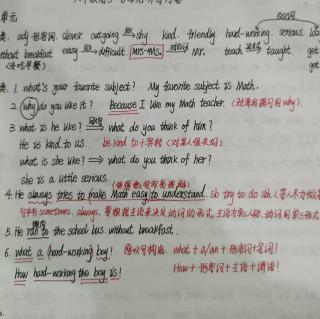 单元
类. adj 形容词. clever outgoing shy. kind. friendly hard-working. serious.
without breakfast easy difficult Mrs=Ms. Mr. teach taught. get
(没吃早餐)
类. 1. what's your favourite subject? My favourite subject is Math.
2. why do you like it? Because I like my Math teacher (对原因提问用why)
3. what is he like? what do you think of him?
He is kind to us. be kind to+宾格(对某人很友好)
what is she like? what do you think of her?
she is a little serious.
4. He always tries to make Math easy to understand. sb try to do sth.
句中有sometimes. always, 要根据主语来决定动词的形式, 主语为第三人称, 动词用第三形式
5. He ran to the school bus without breakfast.
6. what a (hard-working) boy! 感叹句构成 what + a/an + 形容词+名词!
How hard-working the boy is! How+形容词+主语+谓语!